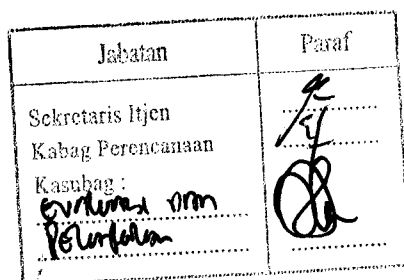 Jabatan Paraf
Sekretaris Itjen
Kabag Perencanaan
Kasubag :
Evaluasi dan
Pelaporan